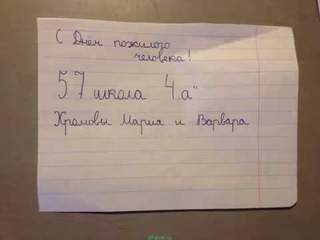 С Днём пожилого
человека!
57 школа 4„а"
Хромовы Мария и Варвара